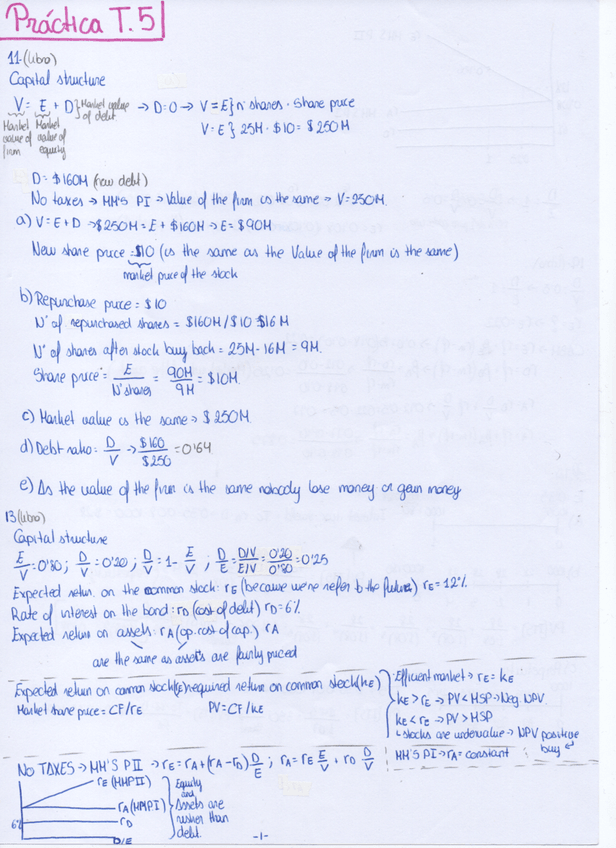 Práctica T.5
11.(libro)
Capital structure
V = E + D } Market value of debt → D=0 → V = E } nº shares · Share price
Market value of firm
Market value of equity
V = E } 25M · $10 = $250M
D = $160M (new debt)
No taxes → MM'S PI → Value of the firm is the same → V=250M.
a) V=E+D → $250M = E + $160M → E = $90M
New share price = $10 (is the same as the Value of the firm is the same)
market price of the stock
b) Repurchase price = $10
Nº of repurchased shares = $160M / $10 = $16M
Nº of shares after stock buy back = 25M - 16M = 9M.
Share price = E / Nº shares = 90M / 9M = $10M.
c) Market value is the same → $250M
d) Debt ratio: D/V → $160/$250 = 0'64
e) As the value of the firm is the same nobody lose money or gain money
13 (libro)
Capital structure
E/V = 0'80 ; D/V = 0'20 ; D/V = 1 - E/V ; D/E = D/V / E/V = 0'20/0'80 = 0'25
Expected return. on the common stock: rE (because we're refer to the future) rE = 12%.
Rate of interest on the bond: rD (cost of debt) rD = 6%
Expected return on assets: rA (op. cost of cap.) rA
are the same as assets are fairly priced
Expected return on common stock(rE) required return on common stock (kE)
Market share price = CF/rE PV = CF/kE
Efficient market → rE = kE
kE > rE → PV < MSP → Neg. NPV
kE < rE → PV > MSP
stocks are undervalue → NPV positive
buy
MM'S PI → rA = constant
NO TAXES → MM'S PII → rE = rA + (rA - rD) D/E ; rA = rE E/V + rD D/V
rE (MMPII)
rA (MMPI)
rD
6%
D/E
Equity and Assets are risher than debt.
-1-